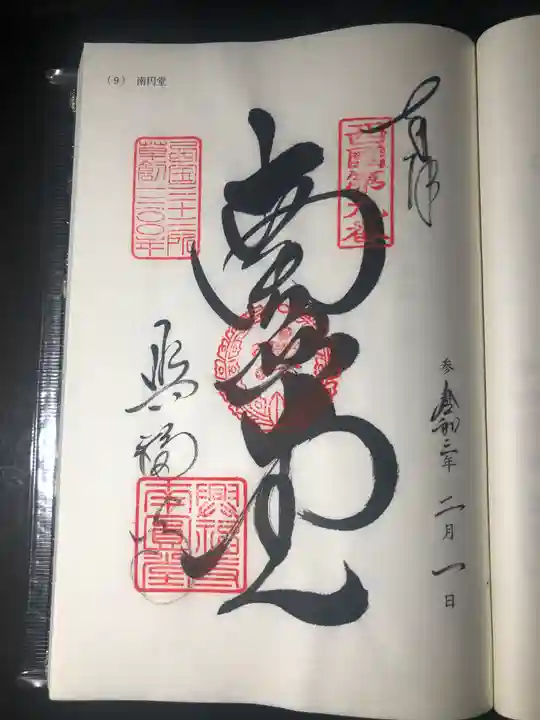 (9) 南円堂
奉拝
西国第九番
参 令和三年 二月一日
南円堂
西国三十三所
草創一三〇〇年
興福寺
興福寺
南円堂